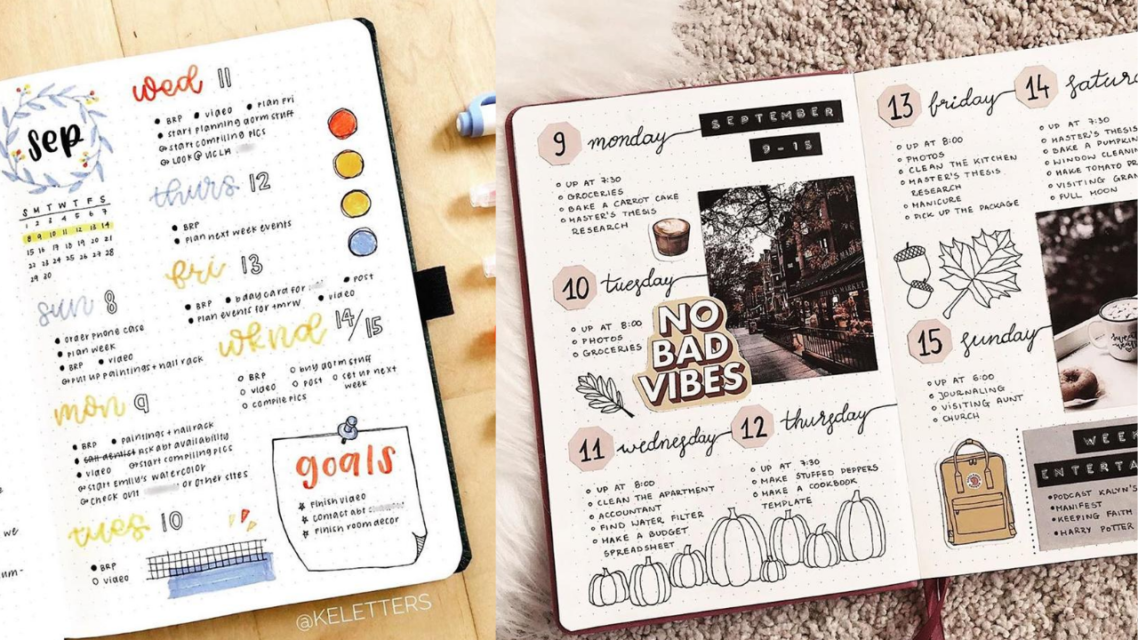 sep
S M T W T F S
1 2 3 4 5 6 7
8 9 10 11 12 13 14
15 16 17 18 19 20 21
22 23 24 25 26 27 28
29 30
sun 8
order phone case
plan week
BRP video
put up paintings + nail rack
mon 9
BRP paintings + nail rack
call dentist ask abt availability
video start compiling pics
start emilu's watercolor
check out or other sites
tues 10
BRP
video
wed 11
BRP video plan fri
start planning dorm stuff
start compiling pics
LOOK @ UCLA
thurs 12
BRP
plan next week events
fri 13
BRP bday card for post
plan events for tmrw video
wknd 14/15
BRP buy dorm stuff
video post set up next
compile pics week
goals
finish video
contact abt
finish room decor
we
@KELETTERS
SEPTEMBER
9-15
9 monday
UP AT 7:30
GROCERIES
BAKE A CARROT CAKE
MASTER'S THESIS
RESEARCH
10 tuesday
UP AT 8:00
PHOTOS
GROCERIES
NO
BAD
VIBES
11 wednesday
UP AT 8:00
CLEAN THE APARTMENT
ACCOUNTANT
FIND WATER FILTER
MAKE A BUDGET
SPREADSHEET
12 thursday
UP AT 7:30
MAKE STUFFED PEPPERS
MAKE A COOKBOOK
TEMPLATE
13 friday
UP AT 8:00
PHOTOS
CLEAN THE KITCHEN
MASTER'S THESIS
RESEARCH
MANICURE
PICK UP THE PACKAGE
14 satur
UP AT 7:30
MASTER'S THESIS
BAKE A PUMPKIN
WINDOW CLEANIN
MAKE TOMATO PR
VISITING GRAN
FULL MOON
15 sunday
UP AT 6:00
JOURNALING
VISITING AUNT
CHURCH
WEEK
ENTERTA
PODCAST KALYN'S
MANIFEST
KEEPING FAITH
HARRY POTTER